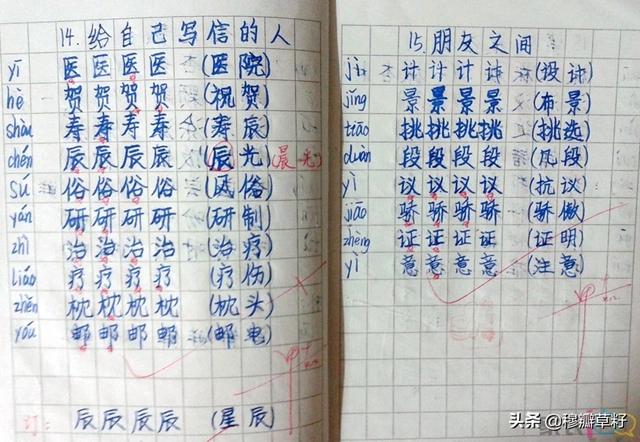 14.给自己写信的人
yī 医医医医(医院)
hè 贺贺贺贺(祝贺)
shòu 寿寿寿寿(寿辰)
chén 辰辰辰辰(辰光)(晨光)
sú 俗俗俗俗(风俗)
yán 研研研研(研制)
zhì 治治治治(治疗)
liáo 疗疗疗疗(疗伤)
zhěn 枕枕枕枕(枕头)
yóu 邮邮邮邮(邮电)
订: 辰辰辰辰(星辰)
15.朋友之间
jì 计计计计(设计)
jǐng 景景景景(布景)
tiāo 挑挑挑挑(挑选)
duàn 段段段段(凡段)
yì 议议议议(抗议)
jiāo 骄骄骄骄(骄傲)
zhèng 证证证证(证明)
yì 意意意意(注意)
头条 @穆瓣草籽